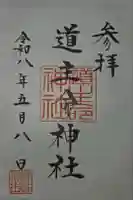 参拝
道主命神社
令和八年五月八日